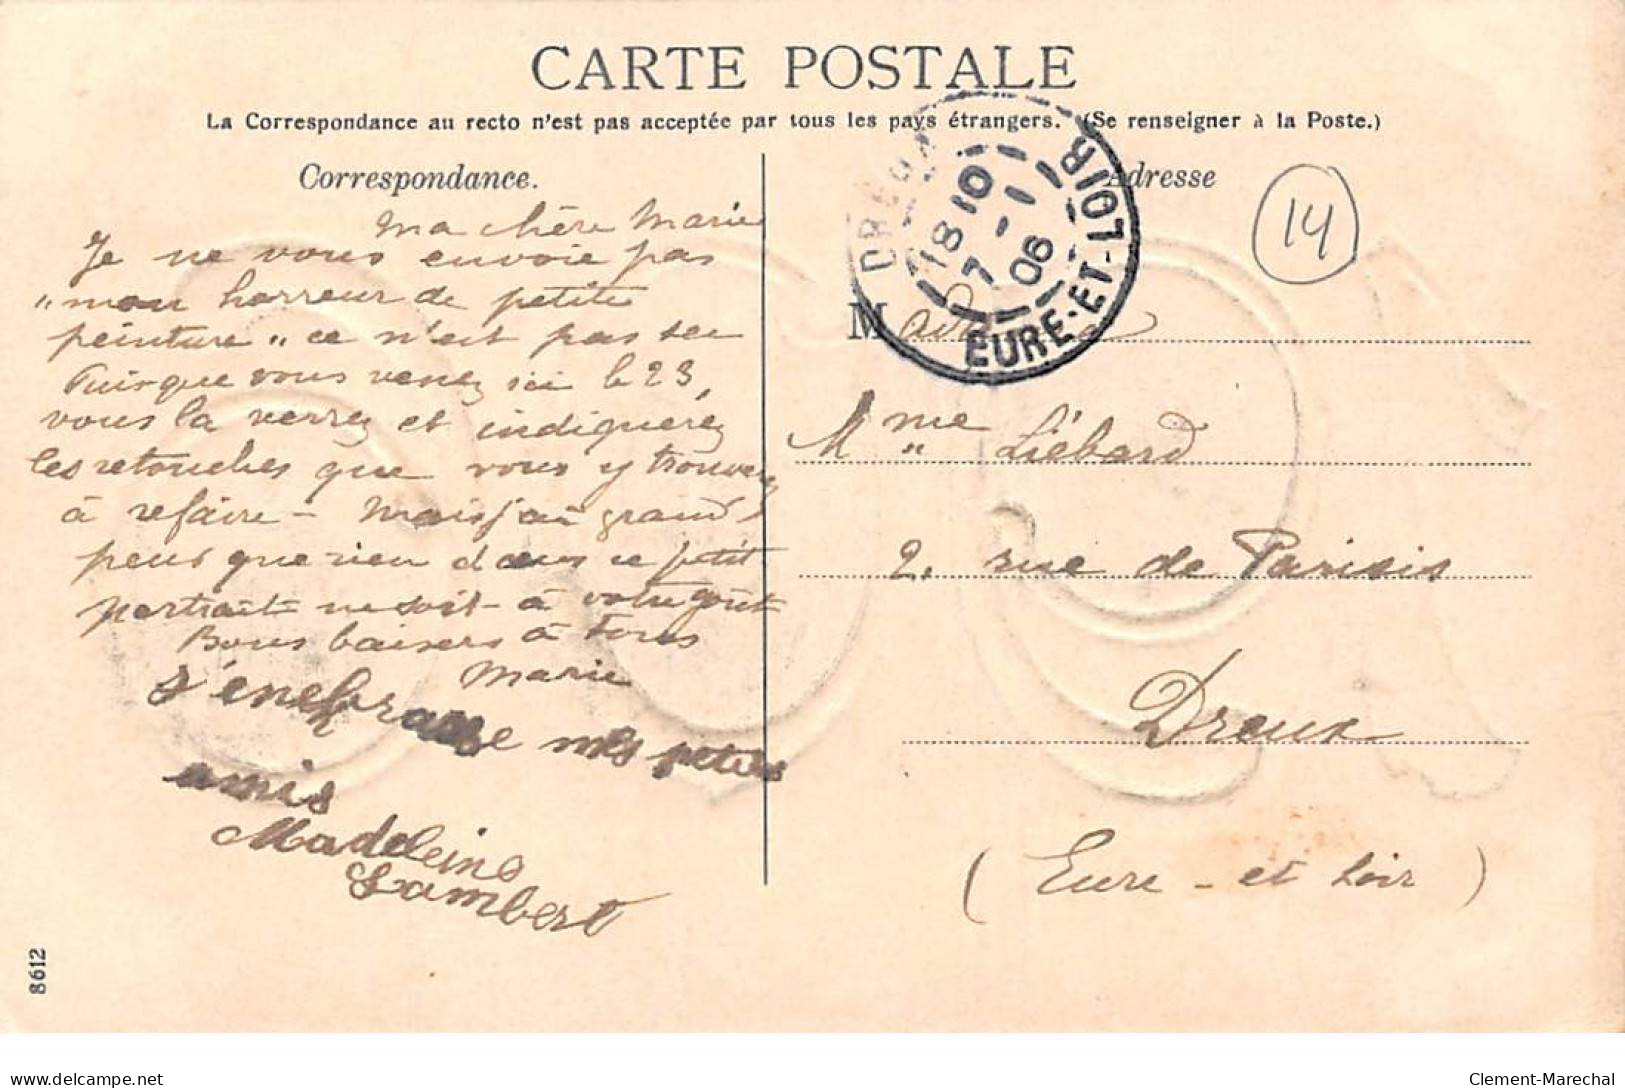 CARTE POSTALE
La Correspondance au recto n'est pas acceptée par tous les pays étrangers. (Se renseigner à la Poste.)
Correspondance.
Ma chère Marie
Je ne vous envoie pas
"mon horreur de petite
peinture" ce n'est pas sec
Puisque vous venez ici le 23,
vous la verrez et indiquerez
les retouches que vous y trouverez
à refaire - Mais j'ai grand
peur que rien dans ce petit
portrait ne soit à votre goût
Bons baisers à tous
Marie
mes petits
amis
Madeleine
Lambert
8612
Adresse
14
DREUX
18 10
7 - 1
06
EURE-ET-LOIR
M
Mme Liébard
2. rue de Parisis
Dreux
(Eure - et Loir)
delcampe.net
Clement-Marechal